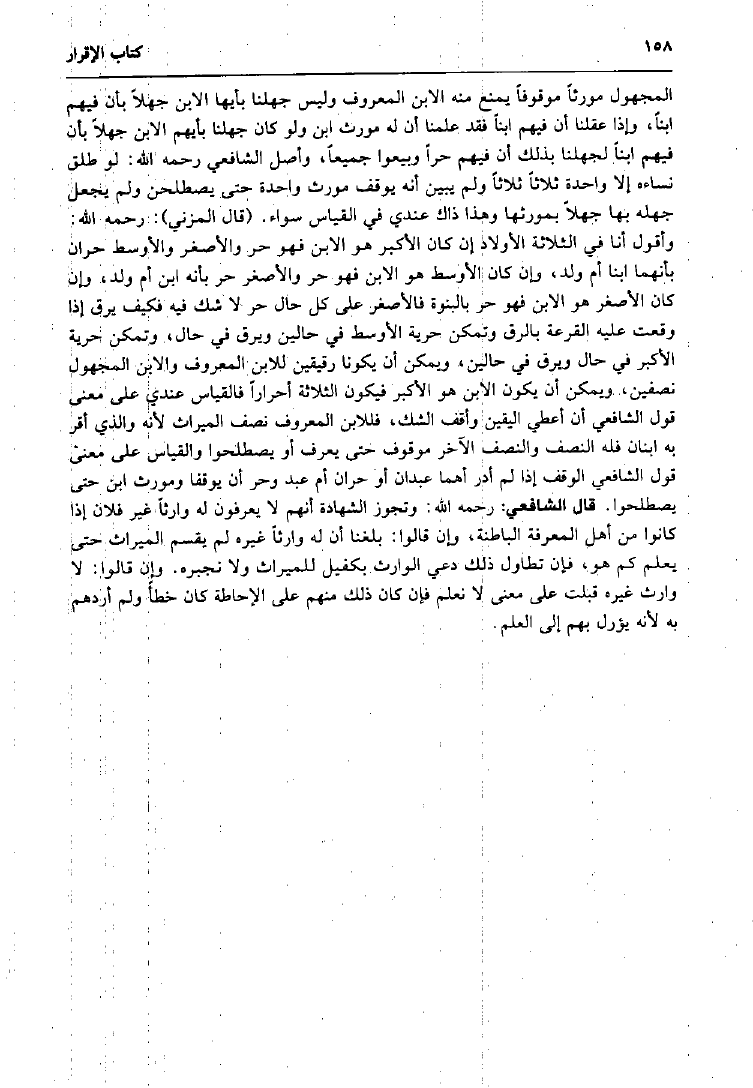 ١٥٨
كتاب الإقرار
المجهول مورثاً موقوفاً يمنع منه الابن المعروف وليس جهلنا بأيها الابن جهلاً بأن فيهم
ابناً، وإذا عقلنا أن فيهم ابناً فقد علمنا أن له مورث ابن ولو كان جهلنا بأيهم الابن جهلاً بأن
فيهم ابناً لجهلنا بذلك أن فيهم حراً وبيعوا جميعاً، وأصل الشافعي رحمه الله: لو طلق
نساءه إلا واحدة ثلاثاً ثلاثاً ولم يبين أنه يوقف مورث واحدة حتى يصطلحن ولم يجعل
جهله بها جهلاً بمورثها وهذا ذاك عندي في القياس سواء. (قال المزني): رحمه الله:
وأقول أنا في الثلاثة الأولاد إن كان الأكبر هو الابن فهو حر والأصغر والأوسط حران
بأنهما ابنا أم ولد، وإن كان الأوسط هو الابن فهو حر والأصغر حر بأنه ابن أم ولد، وإن
كان الأصغر هو الابن فهو حر بالبنوة فالأصغر على كل حال حر لا شك فيه فكيف يرق إذا
وقعت عليه القرعة بالرق وتمكن حرية الأوسط في حالين ويرق في حال، وتمكن حرية
الأكبر في حال ويرق في حالين، ويمكن أن يكونا رقيقين للابن المعروف والابن المجهول
نصفين، ويمكن أن يكون الابن هو الأكبر فيكون الثلاثة أحراراً فالقياس عندي على معنى
قول الشافعي أن أعطي اليقين وأقف الشك، فللابن المعروف نصف الميراث لأنه والذي أقر
به ابنان فله النصف والنصف الآخر موقوف حتى يعرف أو يصطلحوا والقياس على معنى
قول الشافعي الوقف إذا لم أدر أهما عبدان أو حران أم عبد وحر أن يوقفا ومورث ابن حتى
يصطلحوا. قال الشافعي: رحمه الله: وتجوز الشهادة أنهم لا يعرفون له وارثاً غير فلان إذا
كانوا من أهل المعرفة الباطنة، وإن قالوا: بلغنا أن له وارثاً غيره لم يقسم الميراث حتى
يعلم كم هو، فإن تطاول ذلك دعي الوارث بكفيل للميراث ولا نجبره. وإن قالوا: لا
وارث غيره قبلت على معنى لا نعلم فإن كان ذلك منهم على الإحاطة كان خطأ ولم أردهم
به لأنه يؤرل بهم إلى العلم.